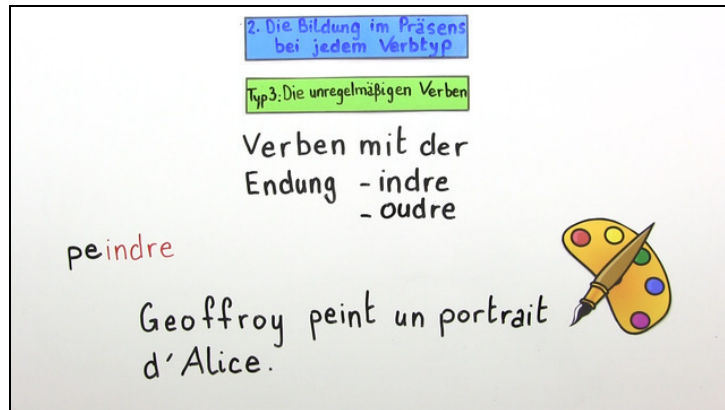 2. Die Bildung im Präsens
bei jedem Verbtyp
Typ3: Die unregelmäßigen Verben
Verben mit der
Endung - indre
- oudre
peindre
Geoffroy peint un portrait
d'Alice.